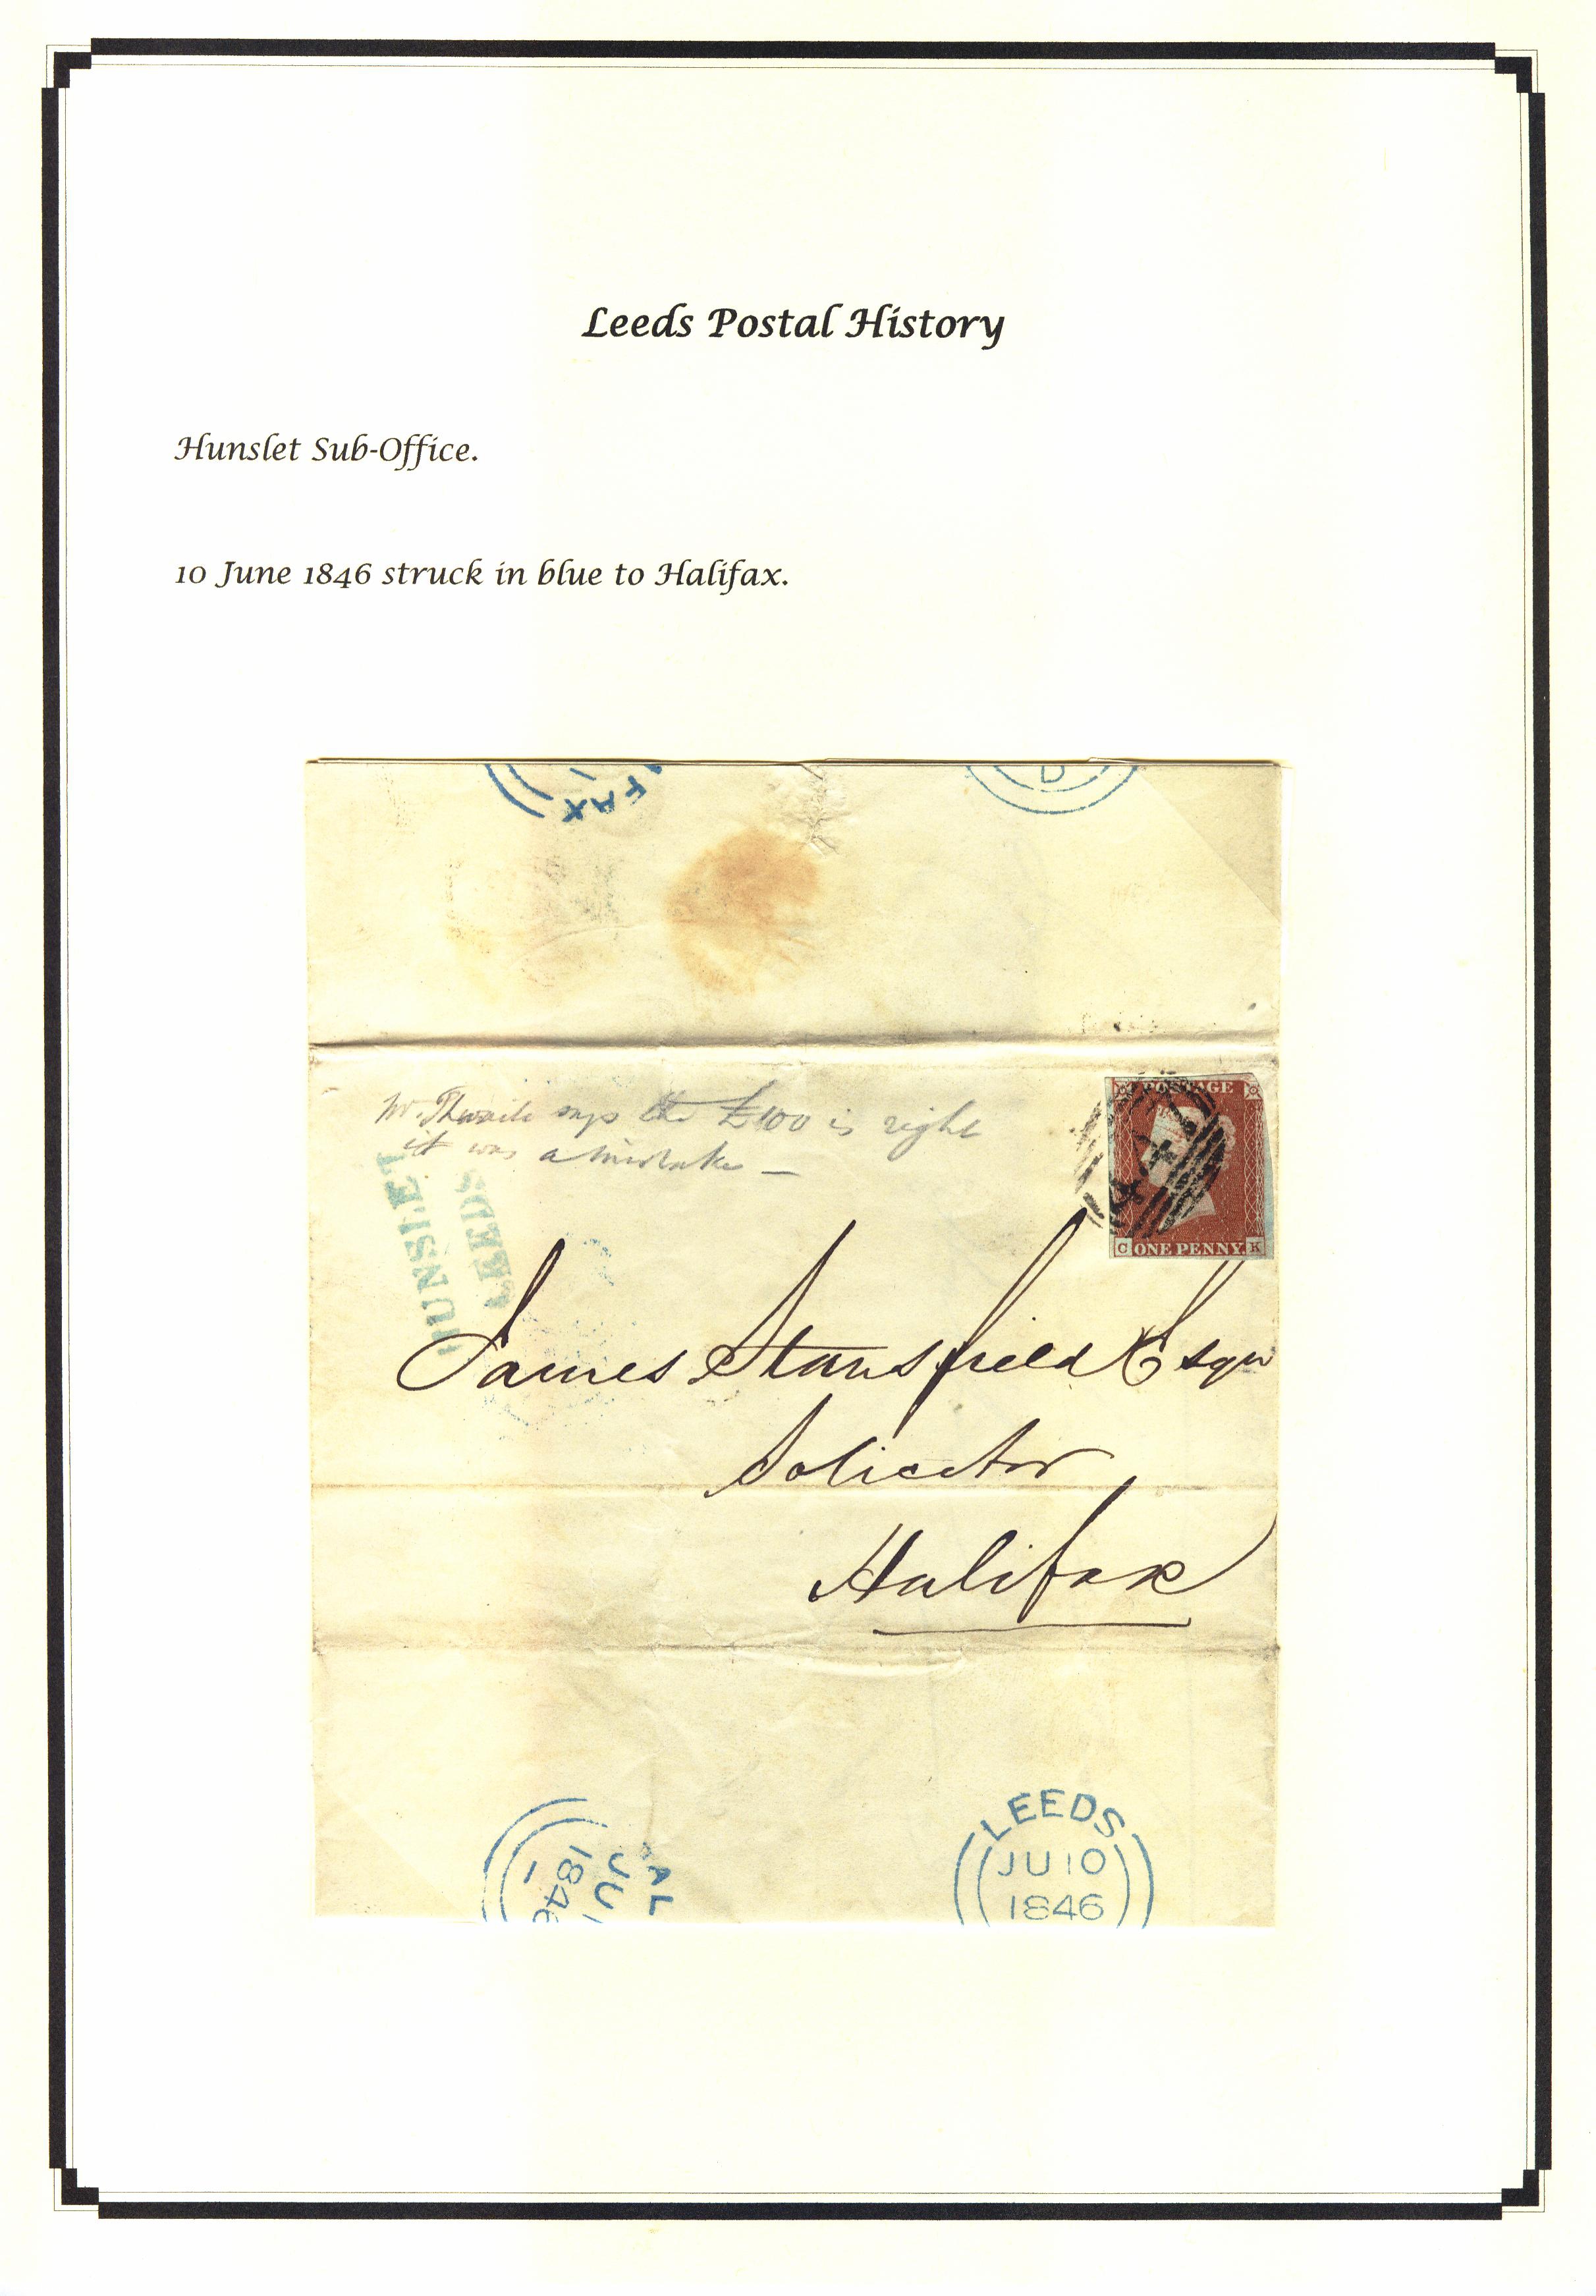 Leeds Postal History
Hunslet Sub-Office.
10 June 1846 struck in blue to Halifax.
FAX
D
says the £100 is right
it was a mistake —
POSTAGE
C ONE PENNY K
HUNSLET
LEEDS
James Stansfield Esqr
Solicitor
Halifax
AL
JU
1846
LEEDS
JU 10
1846